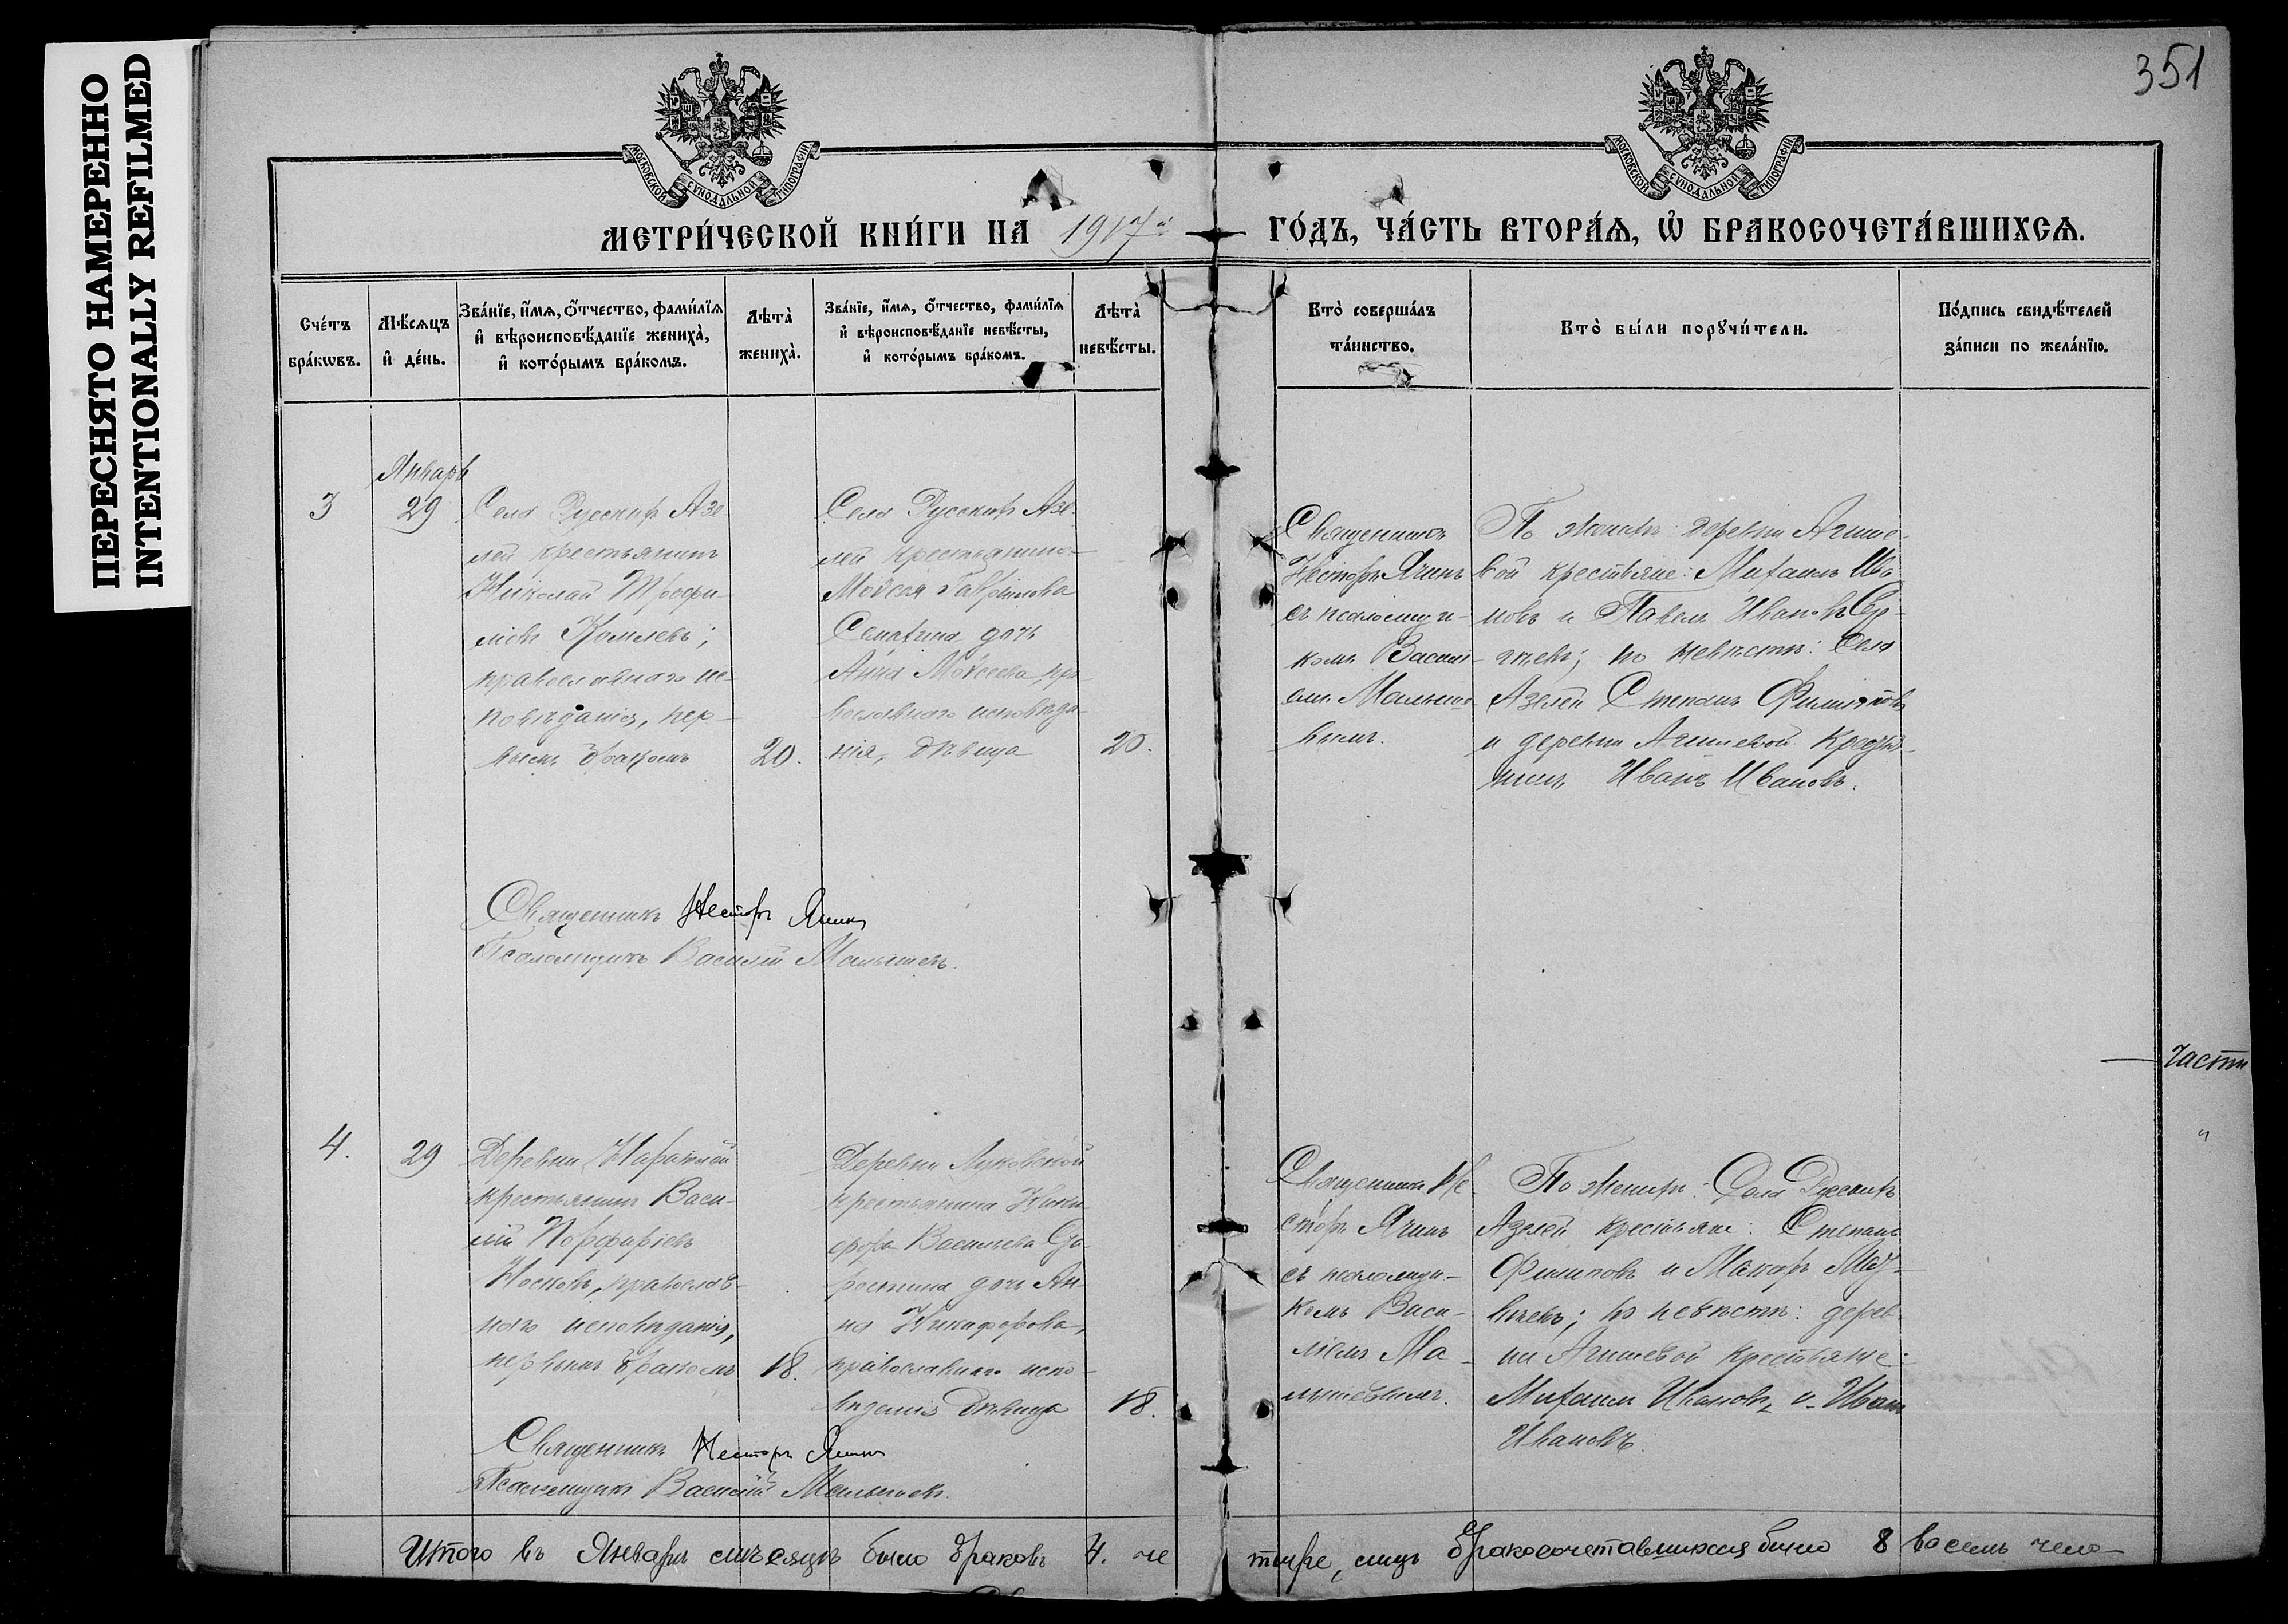 ПЕРЕСНЯТО НАМЕРЕННО
INTENTIONALLY REFILMED
351
МОСКОВСКОЙ СѴНОДАЛЬНОЙ ТИПОГРАФІИ
МОСКОВСКОЙ СѴНОДАЛЬНОЙ ТИПОГРАФІИ
МЕТРИ́ЧЕСКОЙ КНИ́ГИ НА 1917й ГО́ДЪ, ЧА́СТЬ ВТОРА́Ѧ, Ѡ҆ БРАКОСОЧЕТА́ВШИХСѦ.
Сче́тъ
бра́кѡвъ.
Мѣ́сѧцъ
и҆ де́нь.
Зва́нїе, и҆́мѧ, о҆́тчество, фами́лїѧ
и҆ вѣроисповѣ́данїе жениха̀,
и҆ кото́рымъ бра́комъ.
Лѣта̀
жениха̀.
Зва́нїе, и҆́мѧ, о҆́тчество, фами́лїѧ
и҆ вѣроисповѣ́данїе невѣ́сты,
и҆ кото́рымъ бра́комъ.
Лѣта̀
невѣ́сты.
Кто̀ соверша́лъ
та́инство.
Кто̀ бы́ли порꙋчи́тели.
По́дпись свидѣ́телей
за́писи по жела́нїю.
Январь
3
29
Села Русскихъ Азе-
лей крестьянинъ
Николай Трофи-
мовъ Комлевъ;
православнаго ис-
повѣданія, пер-
вымъ бракомъ
20.
Села Русскихъ Азе-
лей крестьянина
Моѵсея Гаврилова
дочь
Анна Моѵсеева, пра-
вославнаго исповѣда-
нія, дѣвица
20.
Священникъ
Несторъ Ялинъ
съ псаломщи-
комъ Васили-
емъ Малыше-
вымъ.
По женихѣ: деревни Агише-
вой крестьяне: Михаилъ Ива-
новъ и Павелъ Ивановъ
по невѣстѣ: села
Азелей Степанъ Филиповъ
и деревни Агишевой крестья-
нинъ Иванъ Ивановъ.
Священникъ Несторъ Ялинъ
Псаломщикъ Василій Малышевъ.
Части
"
4.
29
Деревни
крестьянинъ Васи-
лій Порфирьевъ
Носковъ, православ-
наго исповѣданія,
первымъ бракомъ
18.
Деревни Луковской
крестьянина Ники-
фора Васильева
дочь Ан-
на Никифорова,
православнаго испо-
вѣданія дѣвица
18.
Священникъ Не-
сторъ Ялинъ
съ псаломщи-
комъ Васи-
ліемъ Ма-
лышевымъ.
По женихѣ: Села Русскихъ
Азелей крестьяне: Степанъ
Филиповъ и Макаръ
по невѣстѣ: дерев-
ни Агишевой крестьяне:
Михаилъ Ивановъ и Иванъ
Ивановъ.
Священникъ Несторъ Ялинъ
Псаломщикъ Василій Малышевъ.
Итого въ Январѣ мѣсяцѣ было браковъ 4. четыре, лицъ бракосочетавшихся было 8 восемь чело-